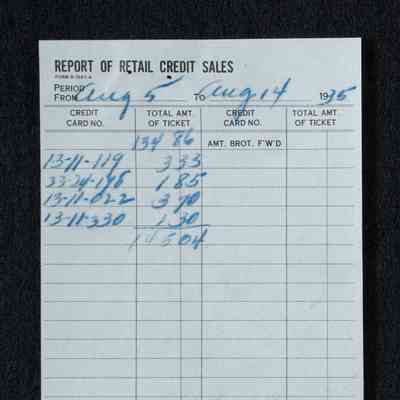 REPORT OF RETAIL CREDIT SALES
PERIOD
FROM Aug 5 TO Aug 14 1935
CREDIT CARD NO. TOTAL AMT. OF TICKET CREDIT CARD NO. TOTAL AMT. OF TICKET
134 86 AMT. BROT. F'W'D
13-11-119 3 33
33-24-196 1 85
13-11-022 3 70
13-11-330 1 30
145 04